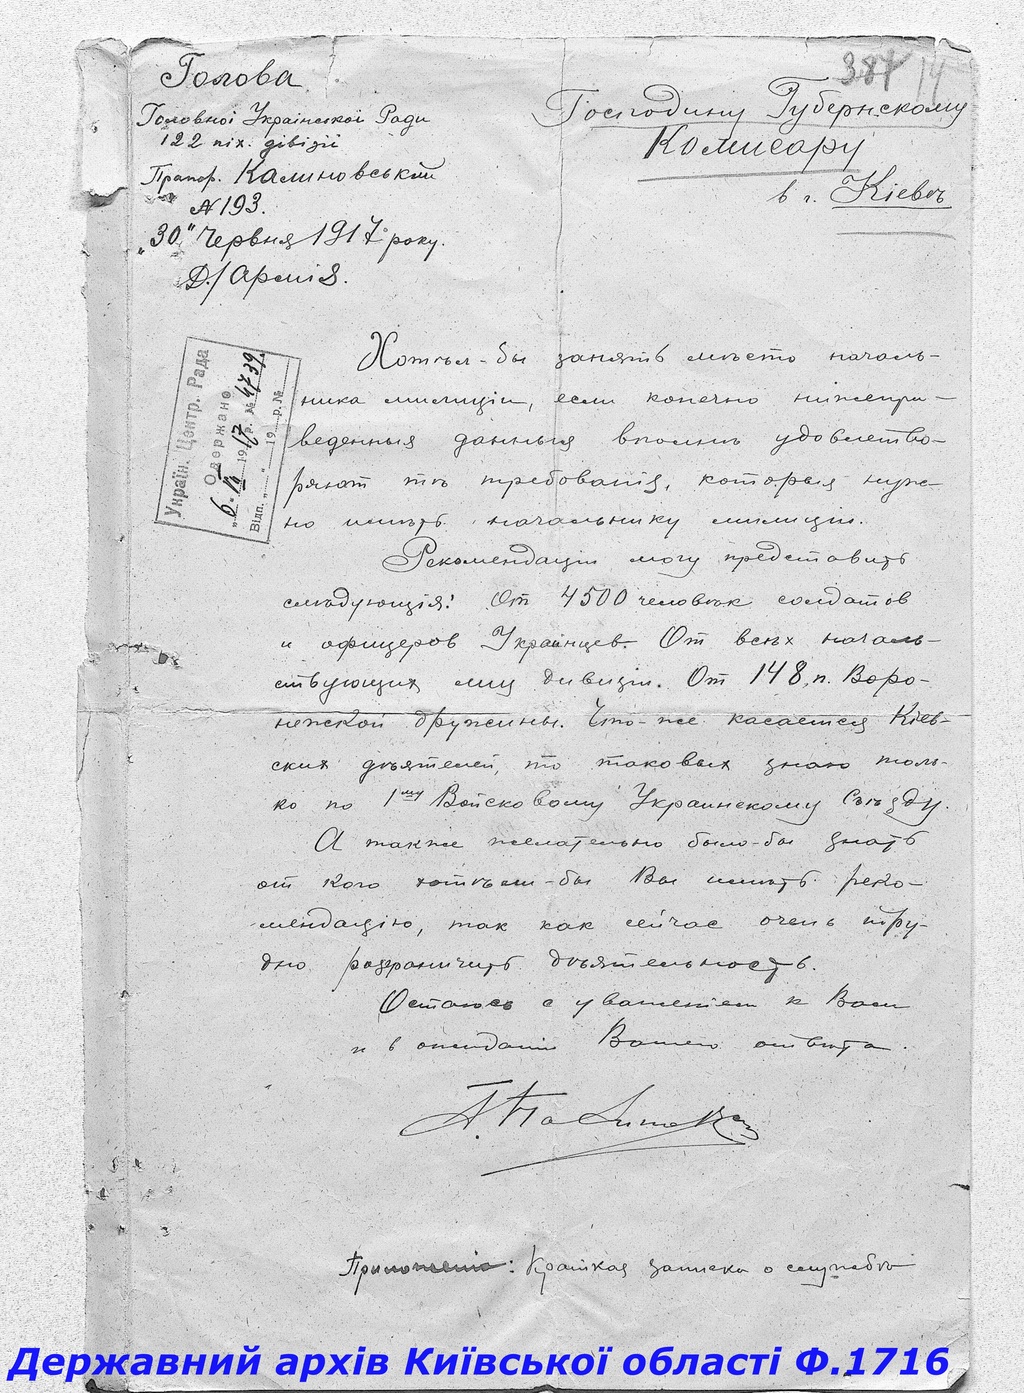 Голова
Головної Української Ради
122 піх. дівізії
Прапор. Калиновський
№ 193.
„30" Червня 1917 року.
Д./Армія.
387 14
Господину Губернскому
Комисару
в г. Кіевъ
Україн. Центр. Рада
Одержано
1917 р. № 4739
Відп. „ " 19 р. №
Хотѣл-бы занять мѣсто началь-
ника милиціи, если конечно нижепри-
веденныя данныя вполнѣ удовлетво-
ряют тѣ требованія, которыя нуж-
но имѣть начальнику милиціи.
Рекомендаціи могу представить
слѣдующія: От 4500 человѣк солдатов
и офицеров Украинцев. От всѣх началь-
ствующих лиц дивизіи. От 148 п. Воро-
нежской дружины. Что-же касается Кіев-
ских дѣятелей, то таковых знаю толь-
ко по 1му Войсковому Украинскому Съѣзду.
А также желательно было-бы знать
от кого хотѣли-бы Вы имѣть реко-
мендацію, так как сейчас очень тру-
дно разграничить дѣятельность.
Остаюсь с уваженіем к Вам
и в ожиданіи Вашего отвѣта.
Приложеніе: Краткая записка о службѣ
Державний архів Київської області Ф.1716